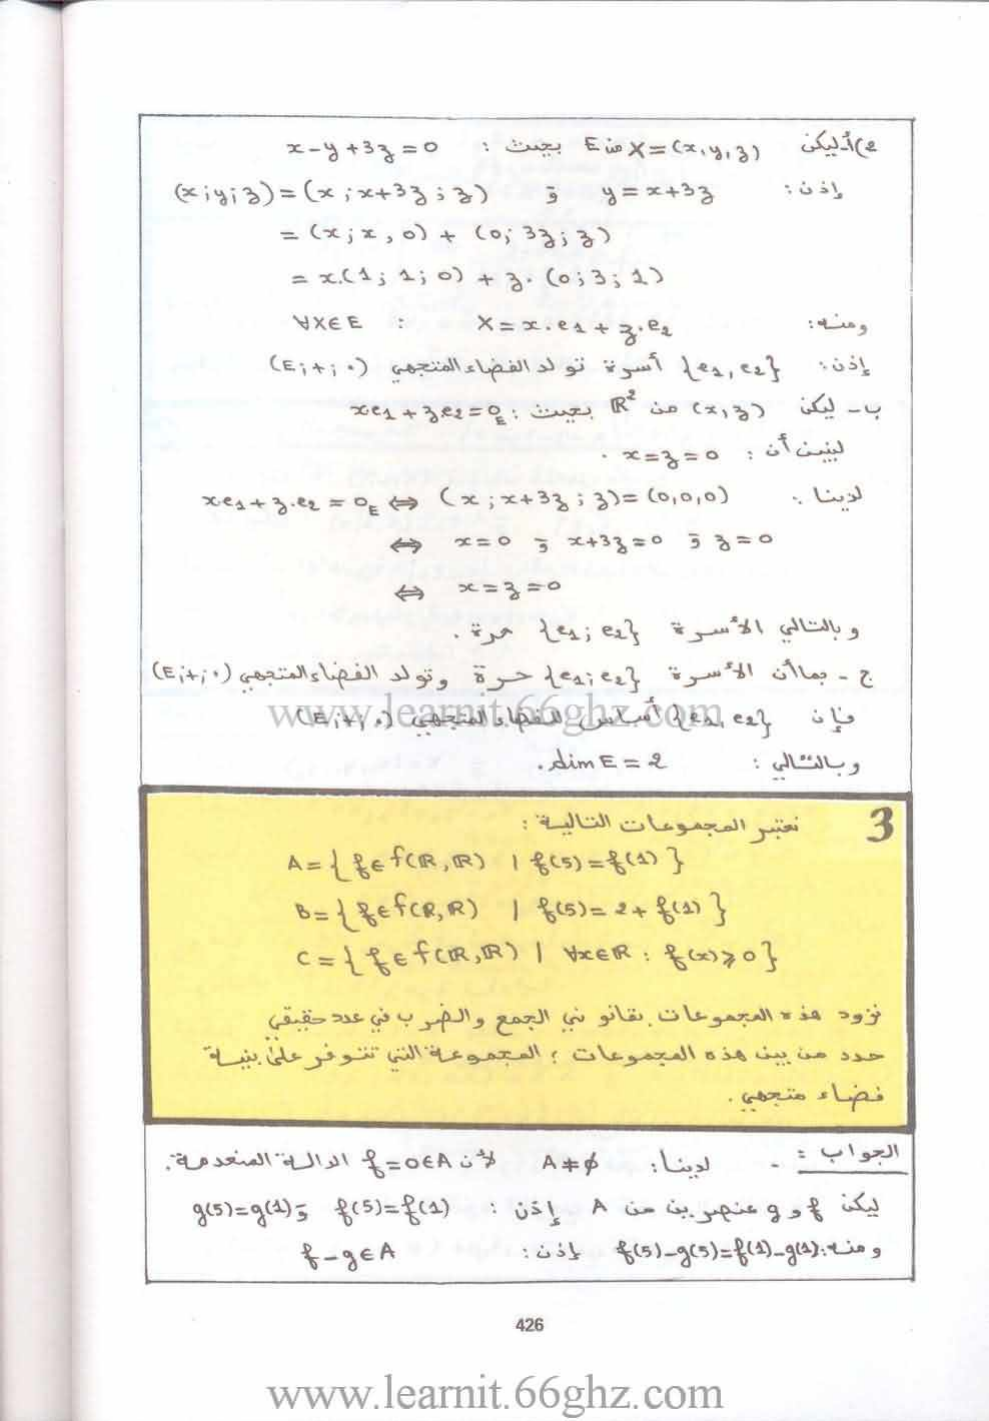 2) أ- ليكن X=(x,y,z) من E بحيث : x-y+3z=0
إذن : y=x+3z و (x;y;z)=(x;x+3z;z)
= (x;x,0) + (0;3z;z)
= x.(1;1;0) + z.(0;3;1)
ومنه: X=x.e1+z.e2 : ∀X∈E
إذن: {e1,e2} أسرة تولد الفضاء المتجهي (E;+;.)
ب- ليكن (x,z) من ℝ² بحيث : xe1+ze2=0E
لنبين أن : x=z=0 .
لدينا : xe1+z.e2=0E ⇔ (x;x+3z;z)=(0,0,0)
⇔ x=0 و x+3z=0 و z=0
⇔ x=z=0
وبالتالي الأسرة {e1;e2} حرة .
ج - بما أن الأسرة {e1;e2} حرة وتولد الفضاء المتجهي (E;+;.)
فإن {e1,e2} أساس للفضاء المتجهي (E;+;.)
www.learnit.66ghz.com
وبالتالي : dim E = 2.
3 نعتبر المجموعات التالية :
A={f∈f(ℝ,ℝ) | f(5)=f(1)}
B={f∈f(ℝ,ℝ) | f(5)=2+f(1)}
C={f∈f(ℝ,ℝ) | ∀x∈ℝ : f(x)⩾0}
نزود هذه المجموعات بقانوني الجمع والضرب في عدد حقيقي
حدد من بين هذه المجموعات ؛ المجموعة التي تتوفر على بنية
فضاء متجهي .
الجواب : - لدينا: A≠∅ لأن f=0∈A الدالة المنعدمة.
ليكن f و g عنصرين من A إذن : f(5)=f(1) و g(5)=g(1)
ومنه: f(5)-g(5)=f(1)-g(1) إذن : f-g∈A
426
www.learnit.66ghz.com